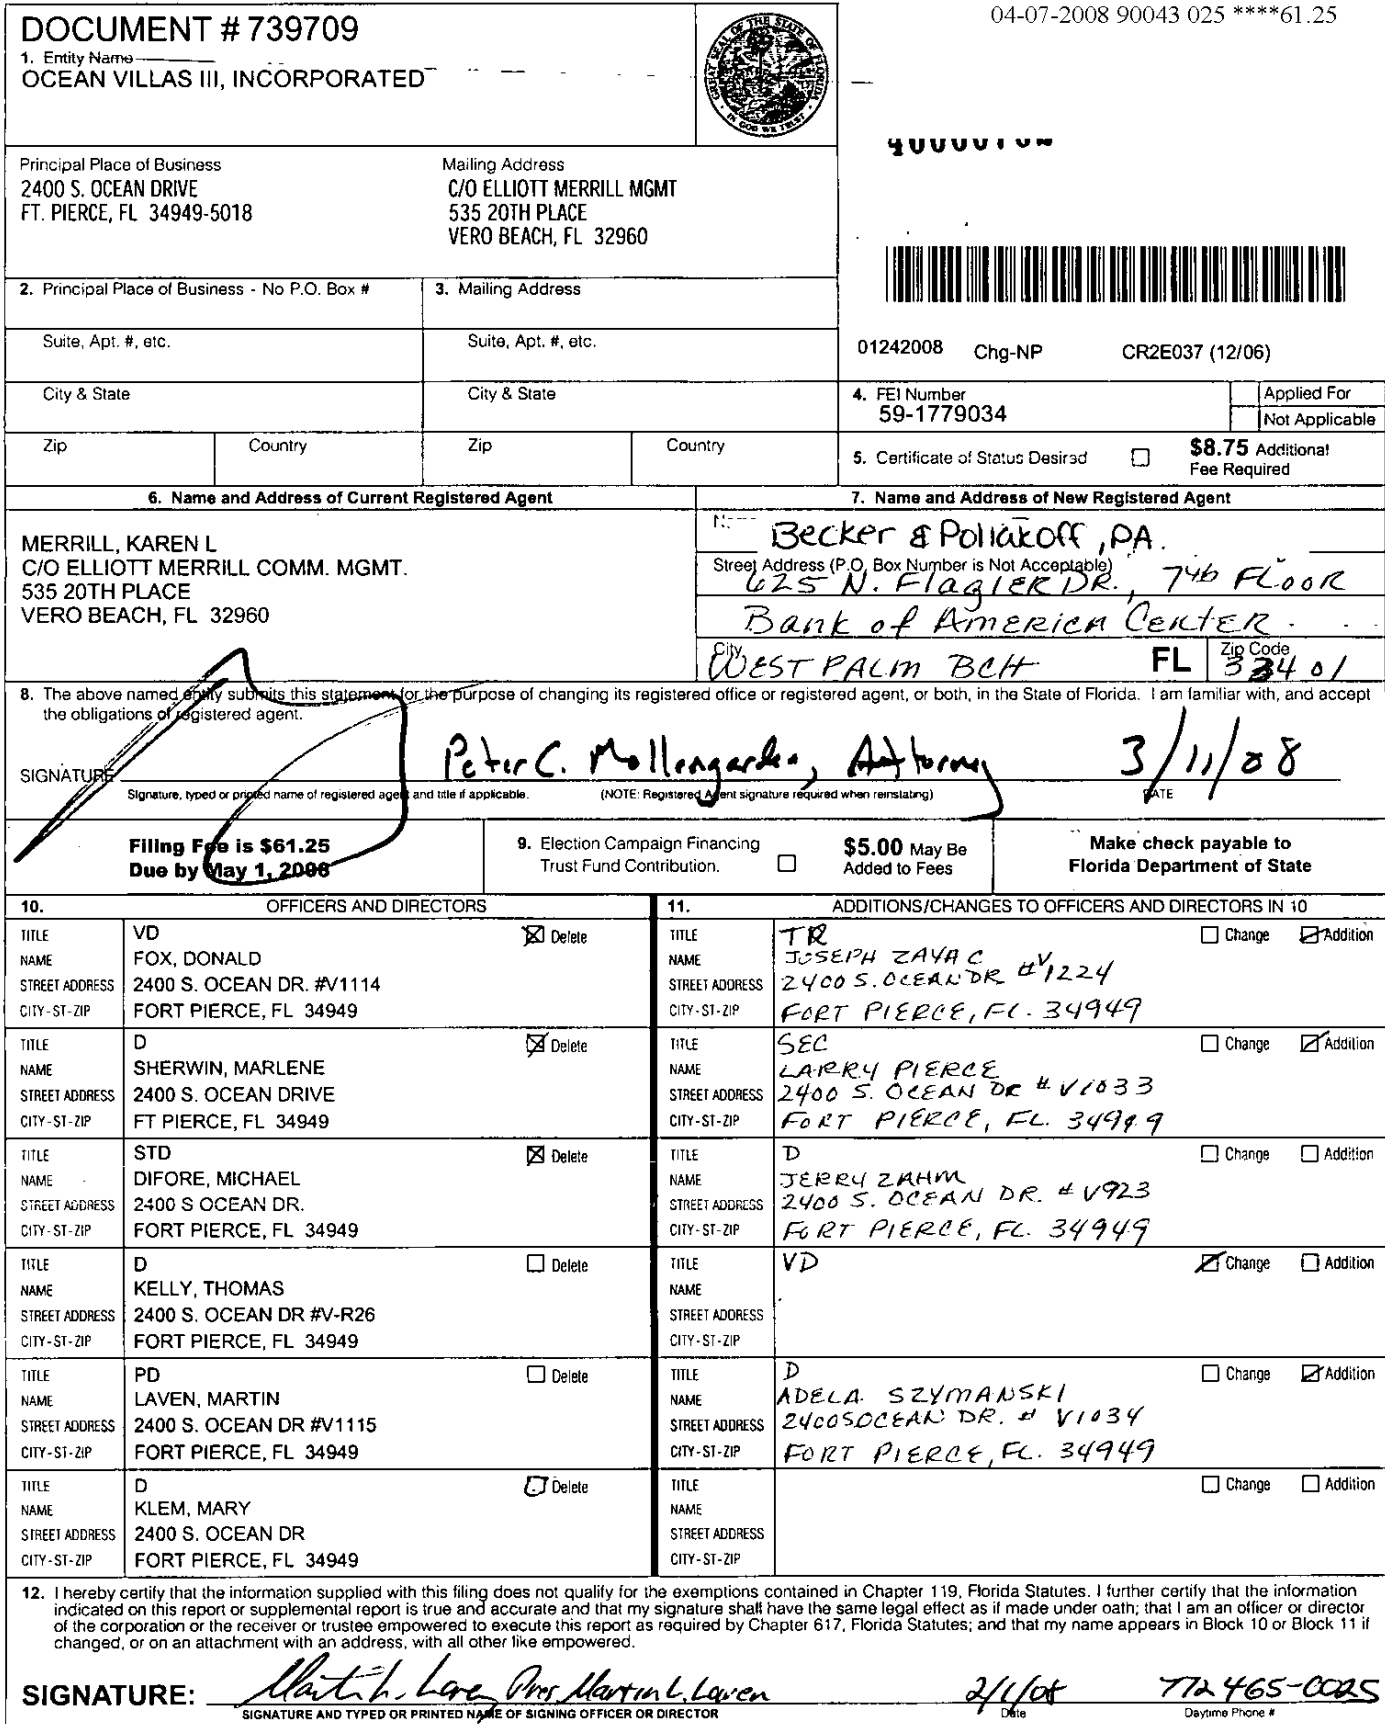 04-07-2008 90043 025 ****61.25
DOCUMENT # 739709
1. Entity Name
OCEAN VILLAS III, INCORPORATED
GREAT SEAL OF THE STATE OF FLORIDA
IN GOD WE TRUST
Principal Place of Business
2400 S. OCEAN DRIVE
FT. PIERCE, FL 34949-5018
Mailing Address
C/O ELLIOTT MERRILL MGMT
535 20TH PLACE
VERO BEACH, FL 32960
2. Principal Place of Business - No P.O. Box #
3. Mailing Address
Suite, Apt. #, etc.
Suite, Apt. #, etc.
01242008 Chg-NP CR2E037 (12/06)
City & State
City & State
4. FEI Number
59-1779034
Applied For
Not Applicable
Zip
Country
Zip
Country
5. Certificate of Status Desired
$8.75 Additional
Fee Required
6. Name and Address of Current Registered Agent
7. Name and Address of New Registered Agent
MERRILL, KAREN L
C/O ELLIOTT MERRILL COMM. MGMT.
535 20TH PLACE
VERO BEACH, FL 32960
Becker & Poliakoff, PA.
Street Address (P.O. Box Number is Not Acceptable)
625 N. Flagler DR., 7th FLOOR
Bank of AMERICA CENTER
City
WEST PALM BCH
FL
Zip Code
33401
8. The above named entity submits this statement for the purpose of changing its registered office or registered agent, or both, in the State of Florida. I am familiar with, and accept
the obligations of registered agent.
SIGNATURE
Peter C. Mollengarden, Attorney 3/11/08
Signature, typed or printed name of registered agent and title if applicable.
(NOTE: Registered Agent signature required when reinstating)
DATE
Filing Fee is $61.25
Due by May 1, 2008
9. Election Campaign Financing
Trust Fund Contribution.
$5.00 May Be
Added to Fees
Make check payable to
Florida Department of State
10. OFFICERS AND DIRECTORS
11. ADDITIONS/CHANGES TO OFFICERS AND DIRECTORS IN 10
TITLE VD Delete
NAME FOX, DONALD
STREET ADDRESS 2400 S. OCEAN DR. #V1114
CITY-ST-ZIP FORT PIERCE, FL 34949
TITLE TR Change Addition
NAME JOSEPH ZAYAC
STREET ADDRESS 2400 S. OCEAN DR #V1224
CITY-ST-ZIP FORT PIERCE, FL. 34949
TITLE D Delete
NAME SHERWIN, MARLENE
STREET ADDRESS 2400 S. OCEAN DRIVE
CITY-ST-ZIP FT PIERCE, FL 34949
TITLE SEC Change Addition
NAME LARRY PIERCE
STREET ADDRESS 2400 S. OCEAN DR # V1033
CITY-ST-ZIP FORT PIERCE, FL. 34949
TITLE STD Delete
NAME DIFORE, MICHAEL
STREET ADDRESS 2400 S OCEAN DR.
CITY-ST-ZIP FORT PIERCE, FL 34949
TITLE D Change Addition
NAME JERRY ZAHM
STREET ADDRESS 2400 S. OCEAN DR. # V923
CITY-ST-ZIP FORT PIERCE, FL. 34949
TITLE D Delete
NAME KELLY, THOMAS
STREET ADDRESS 2400 S. OCEAN DR #V-R26
CITY-ST-ZIP FORT PIERCE, FL 34949
TITLE VD Change Addition
NAME
STREET ADDRESS
CITY-ST-ZIP
TITLE PD Delete
NAME LAVEN, MARTIN
STREET ADDRESS 2400 S. OCEAN DR #V1115
CITY-ST-ZIP FORT PIERCE, FL 34949
TITLE D Change Addition
NAME ADELA SZYMANSKI
STREET ADDRESS 2400 S OCEAN DR. # V1034
CITY-ST-ZIP FORT PIERCE, FL. 34949
TITLE D Delete
NAME KLEM, MARY
STREET ADDRESS 2400 S. OCEAN DR
CITY-ST-ZIP FORT PIERCE, FL 34949
TITLE Change Addition
NAME
STREET ADDRESS
CITY-ST-ZIP
12. I hereby certify that the information supplied with this filing does not qualify for the exemptions contained in Chapter 119, Florida Statutes. I further certify that the information
indicated on this report or supplemental report is true and accurate and that my signature shall have the same legal effect as if made under oath; that I am an officer or director
of the corporation or the receiver or trustee empowered to execute this report as required by Chapter 617, Florida Statutes; and that my name appears in Block 10 or Block 11 if
changed, or on an attachment with an address, with all other like empowered.
SIGNATURE: Martin L. Laven Pres Martin L. Laven 2/1/08 772 465-0025
SIGNATURE AND TYPED OR PRINTED NAME OF SIGNING OFFICER OR DIRECTOR
Date
Daytime Phone #